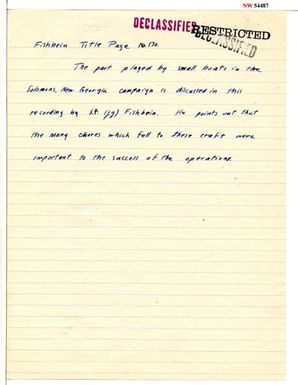 NW 54487
DECLASSIFIED
RESTRICTED
DECLASSIFIED
Fishbein Title Page No 170.
The part played by small boats in the
Solomons, New Georgia campaign is discussed in this
recording by Lt. (jg) Fishbein. He points out that
the many chores which fell to these craft were
important to the success of the operations.